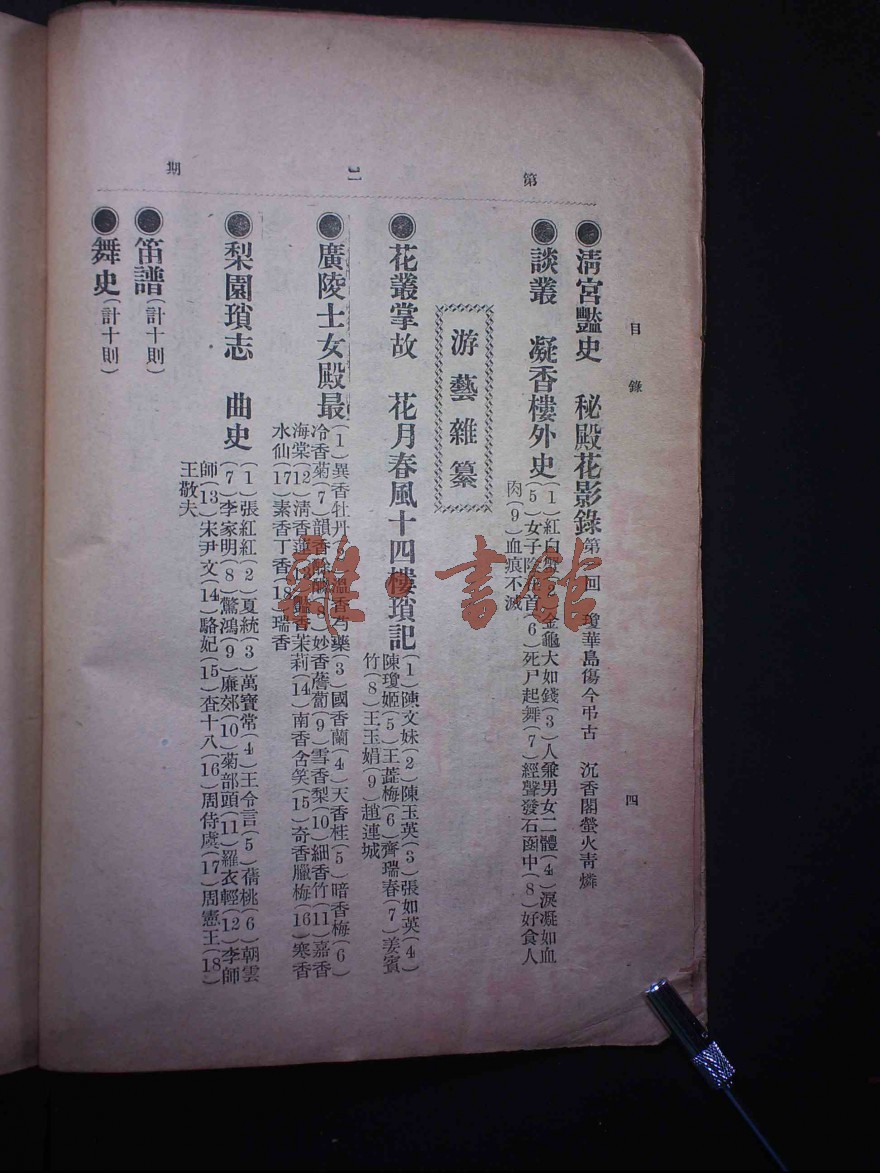 第二期
目錄
四
●清宮豔史 秘殿花影錄 第 回 瓊華島傷今弔古 沉香閣螢火靑燐
●談叢 凝香樓外史 (1)紅白蟹(2)金龜大如錢(3)人兼男女二體(4)淚凝如血
(5)女子 首(6)死尸起舞(7)經聲發石函中(8)好食人
肉(9)血痕不滅
游藝雜纂
●花叢掌故 花月春風十四樓瑣記 (1)陳文妹(2)陳玉英(3)張如英(4)
陳瓊姬(5)王蕋梅(6)齊瑞春(7)姜賓
竹(8)王玉娟(9)趙連城
●廣陵士女殿最 (1)異香牡丹(2)溫香芍藥(3)國香蘭(4)天香桂(5)暗香梅(6)
冷香菊(7)韻香酴醾(8)妙香薝蔔(9)雪香梨(10)細香竹(11)嘉香
海棠(12)清香蓮(13)豔香茉莉(14)南香含笑(15)奇香臘梅(16)寒香
水仙(17)素香丁香(18)瑞香
●梨園瑣志 曲史 (1)張紅紅(2)夏統(3)萬寶常(4)王令言(5)蒨桃(6)朝雲
(7)李家明(8)驚鴻(9)廉郊(10)菊部頭(11)羅衣輕(12)李師
師(13)宋尹文(14)駱妃(15)査十八(16)周侍虞(17)周憲王(18)
王敬夫
●笛譜(計十則)
●舞史(計十則)
雜·書館